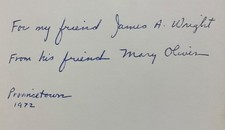 For my friend James A. Wright
From his friend Mary Oliver
Provincetown
1972